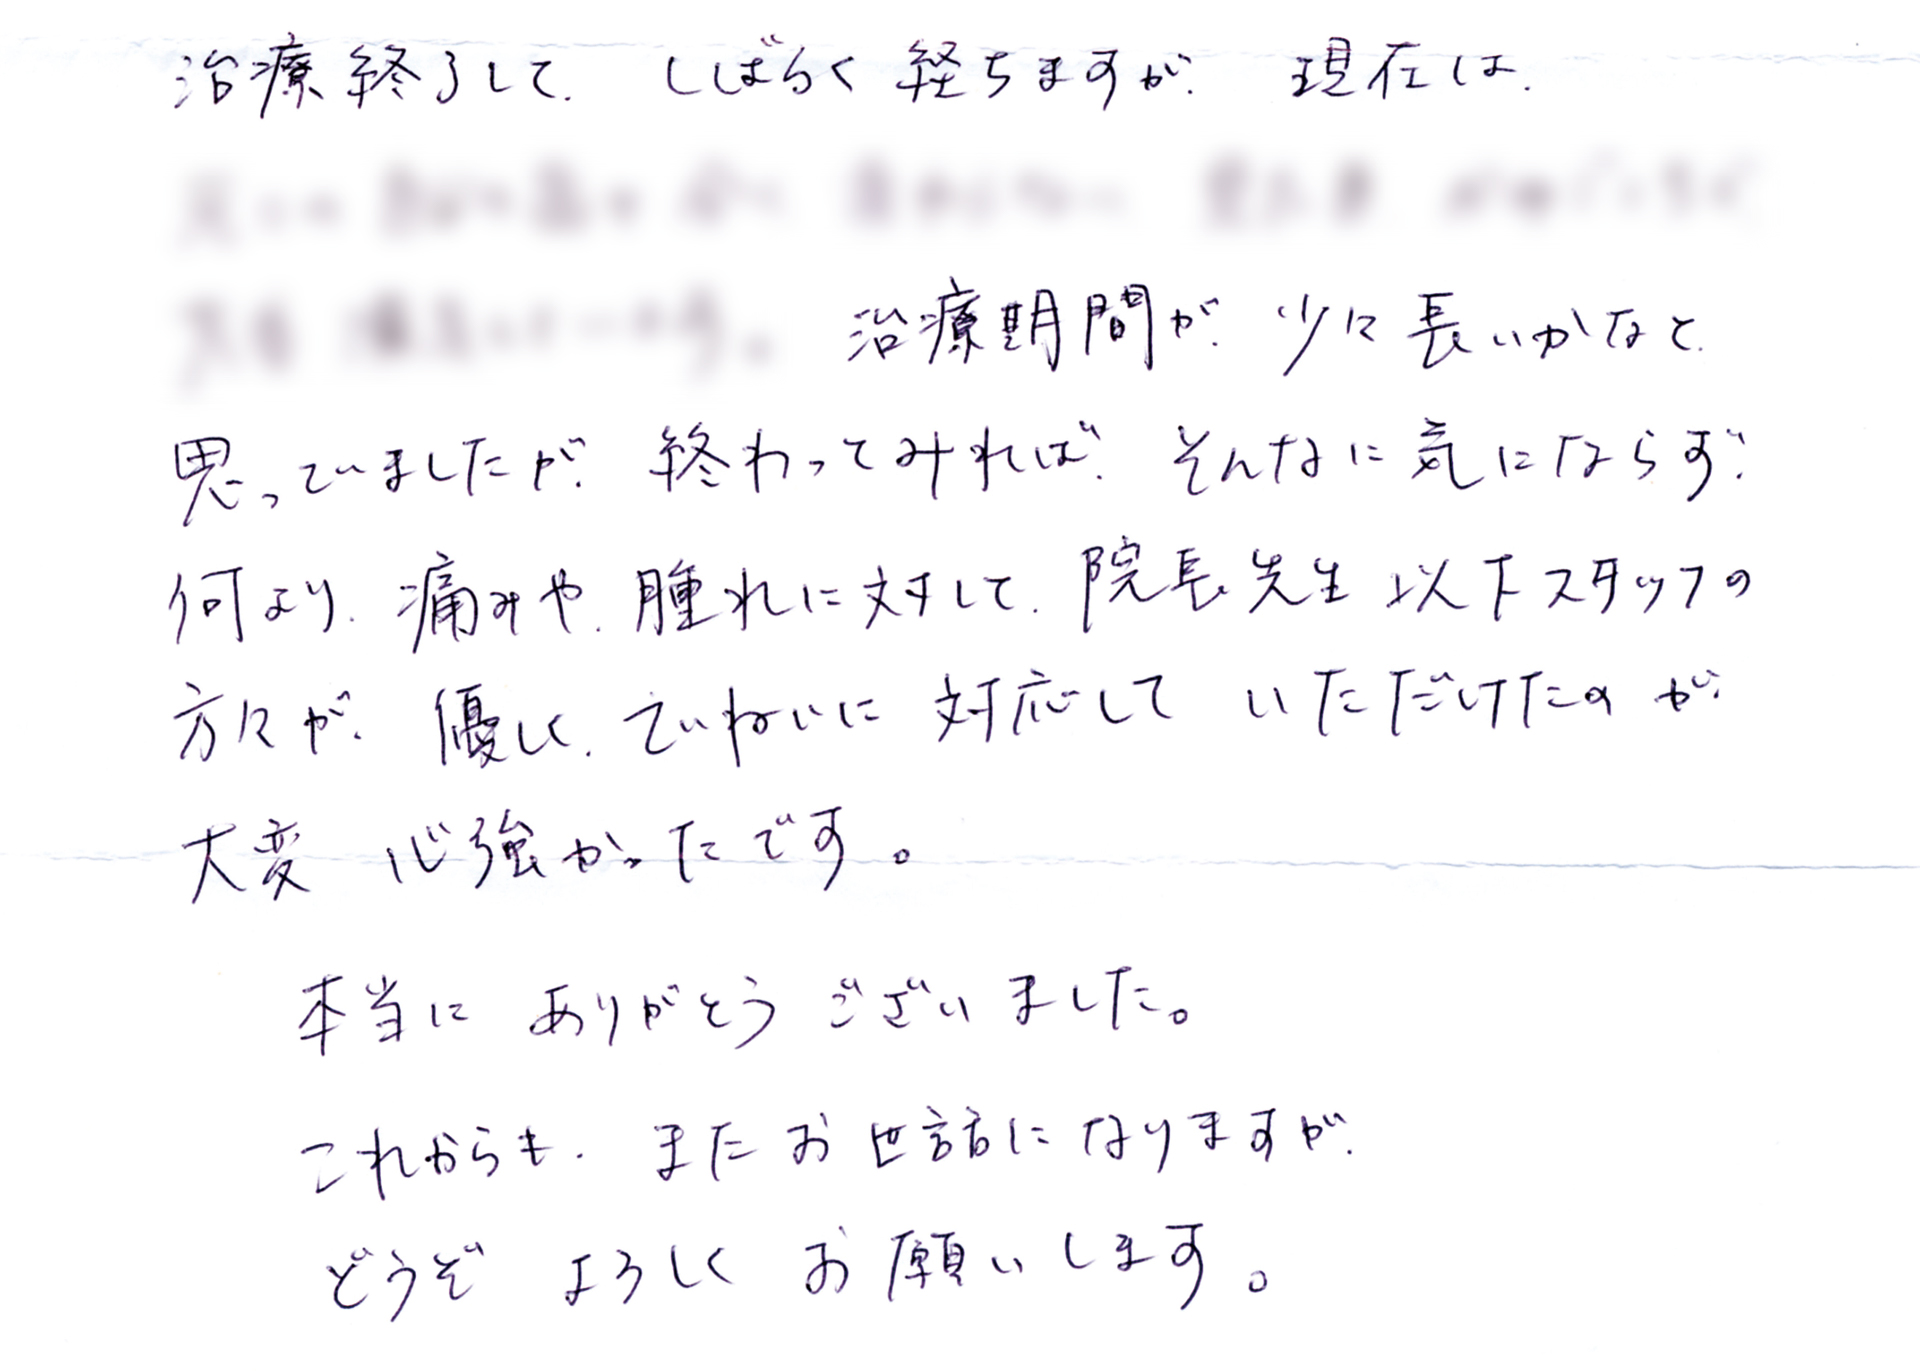 治療終了して、しばらく経ちますが、現在は、
治療期間が、少々長いかなと、
思っていましたが、終わってみれば、そんなに気にならず、
何より、痛みや、腫れに対して、院長先生以下スタッフの
方々が、優しく、ていねいに対応していただけたのが、
大変心強かったです。
本当にありがとうございました。
これからも、またお世話になりますが、
どうぞよろしくお願いします。